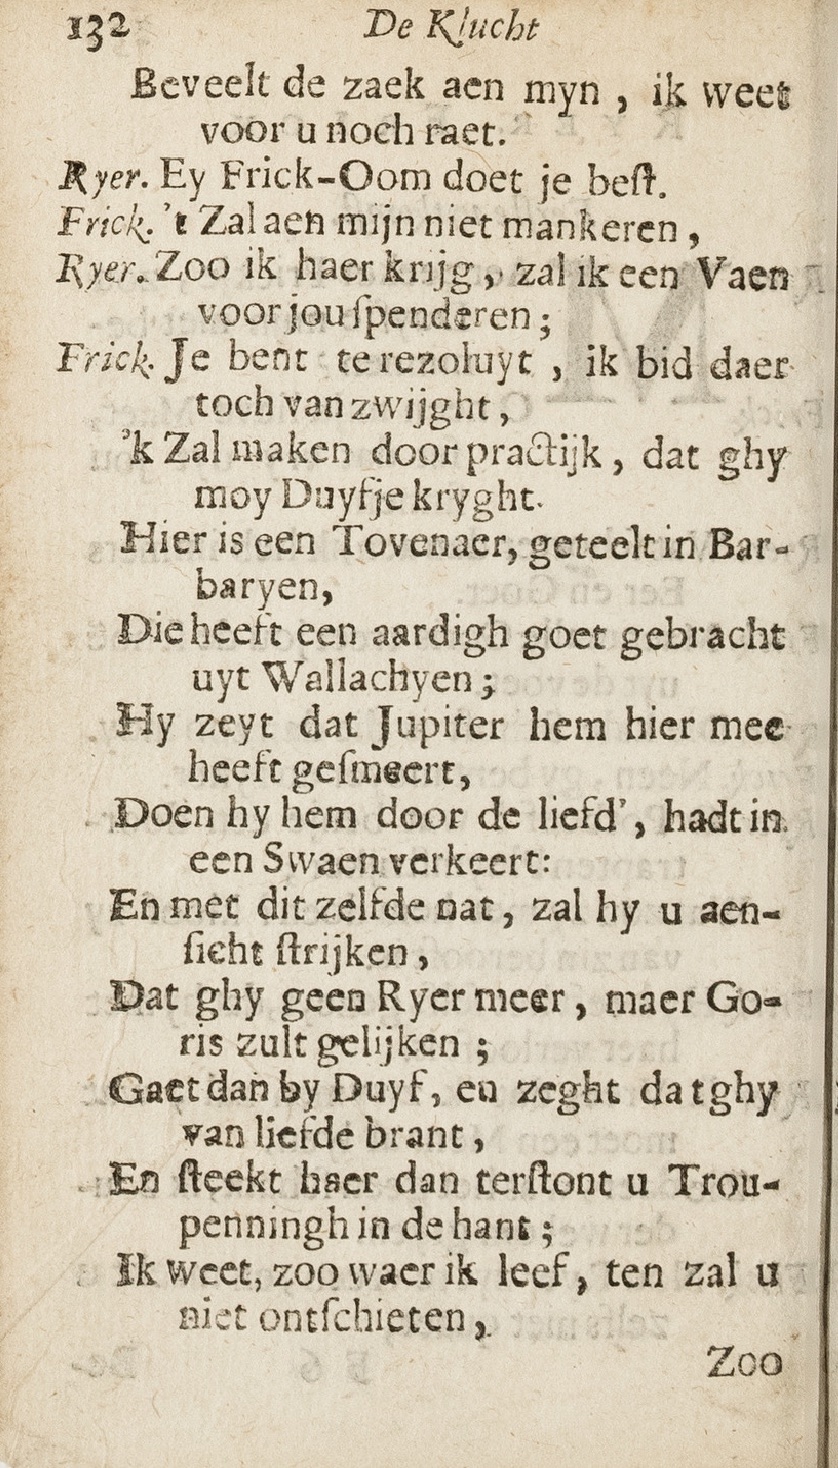 132 De Klucht
Beveelt de zaek aen myn , ik weet
voor u noch raet.
Ryer. Ey Frick-Oom doet je beſt.
Frick. 't Zal aen mijn niet mankeren ,
Ryer. Zoo ik haer krijg , zal ik een Vaen
voor jou ſpenderen ;
Frick. Je bent te rezoluyt , ik bid daer
toch van zwijght ,
'k Zal maken door practijk , dat ghy
moy Duyfje kryght.
Hier is een Tovenaer, geteelt in Bar-
baryen,
Die heeft een aardigh goet gebracht
uyt Wallachyen ;
Hy zeyt dat Jupiter hem hier mee
heeft geſmeert,
Doen hy hem door de liefd', hadt in
een Swaen verkeert:
En met dit zelfde nat, zal hy u aen-
ſicht ſtrijken ,
Dat ghy geen Ryer meer , maer Go-
ris zult gelijken ;
Gaet dan by Duyf, en zeght dat ghy
van liefde brant ,
En ſteekt haer dan terſtont u Trou-
penningh in de hant ;
Ik weet, zoo waer ik leef, ten zal u
niet ontſchieten ,
Zoo